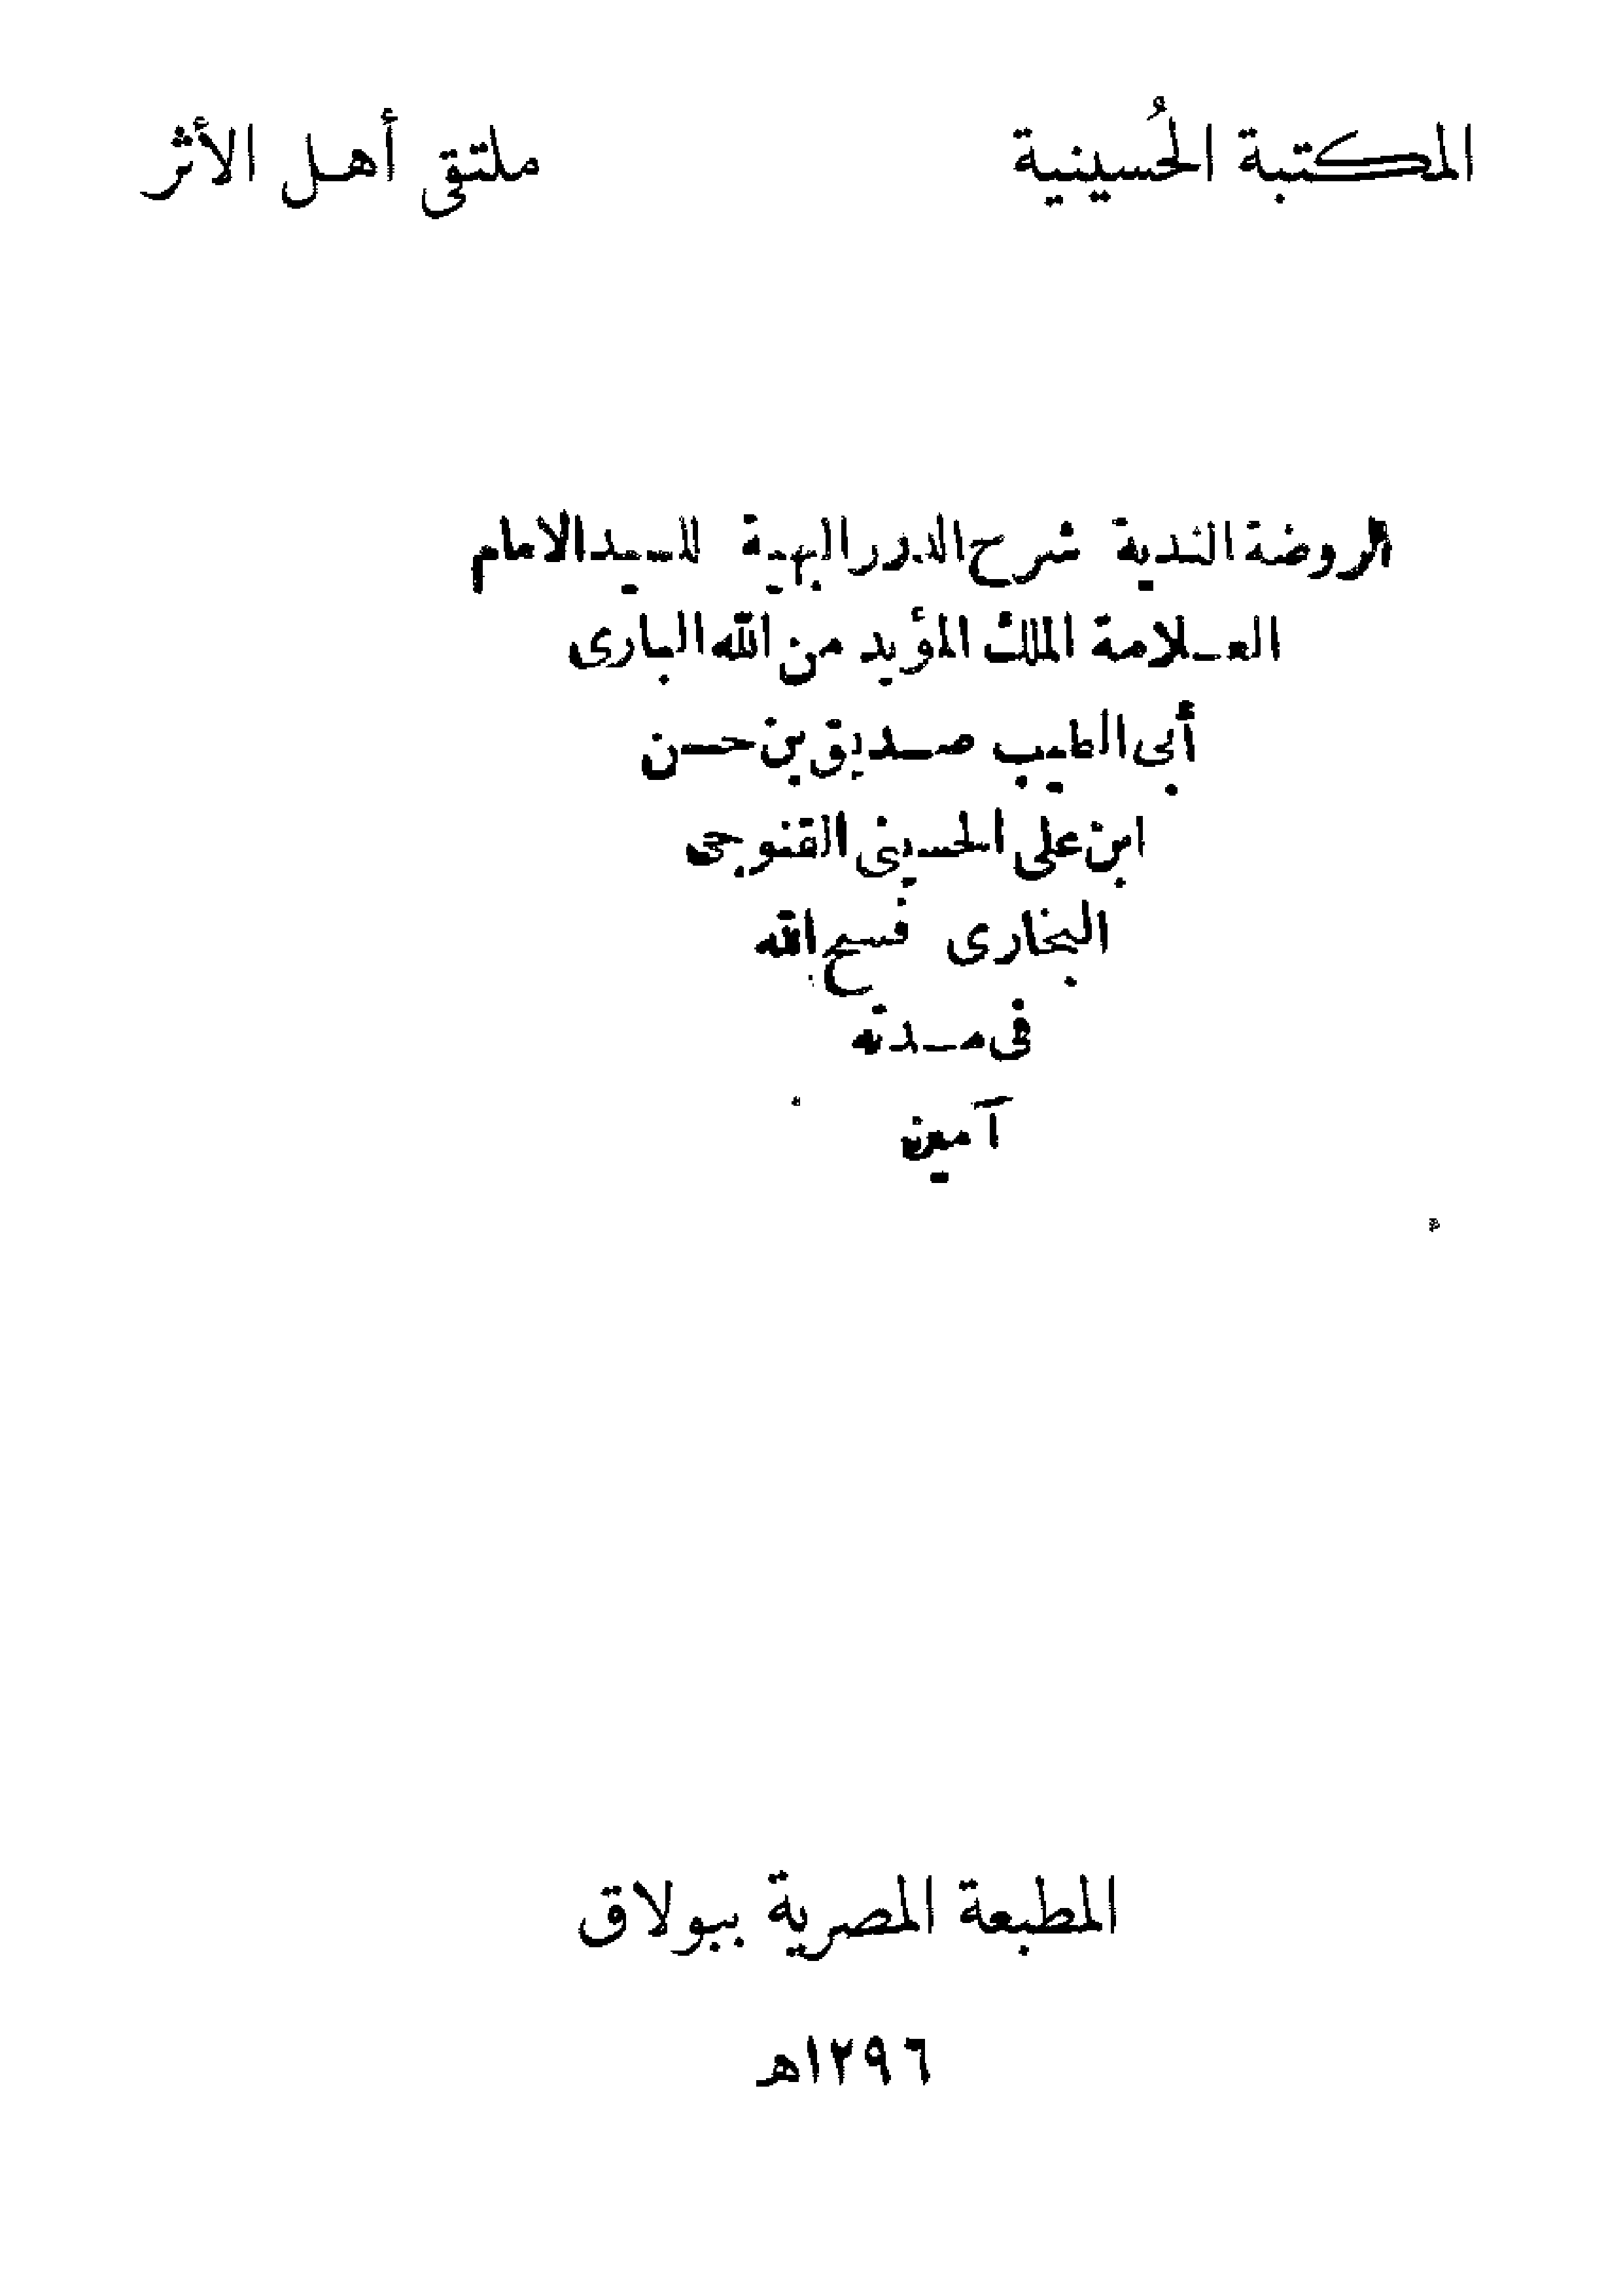 المكتبة الحُسينية
ملتقى أهل الأثر
الروضة الندية شرح الدرر البهية للسيد الامام
العلامة الملك المؤيد من الله البارى
أبى الطيب صديق بن حسن
ابن على الحسينى القنوجى
البخارى فسح الله
فى مدته
آمين
المطبعة المصرية ببولاق
١٢٩٦هـ